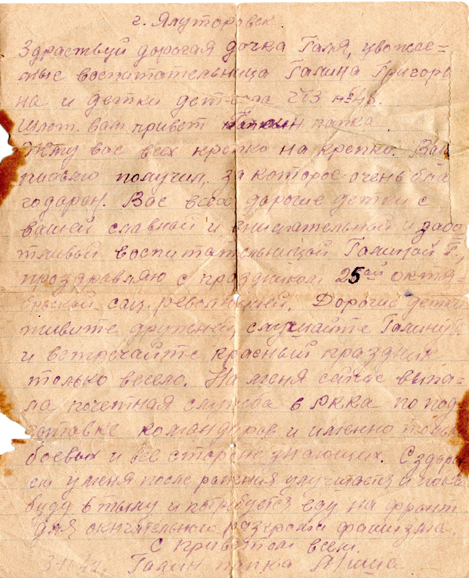 г. Ялуторовск.
Здраствуй дорогая дочка Галя, уважае-
мые воспитательница Галина Григоро
на и детки дет-сада ЧТЗ № 48.
Шлет вам привет папка.
Жму вас всех крепко на крепко. Ваш
письмо получил, за которое очень бла
годарен. Вас всех дорогие детки с
вашей славный и внимательный и забо
тливый воспитательницей Галиной Г.
проздравляю с праздником 25ой октя
брьской соц. революций. Дорогие детки
живите дружней слушайте Галину
и встречайте красный праздник
только весело. На меня сейчас выпа-
ла почетная служба в РККА по под
готовке командиров и именно
боевых и все сторон знающих. С здоро
ем у меня после ранения улучшается и пока
буду в тылу и потребуется еду на фронт
для окнчательной разгрома фашизма.
С приветом всем.
Галин папка